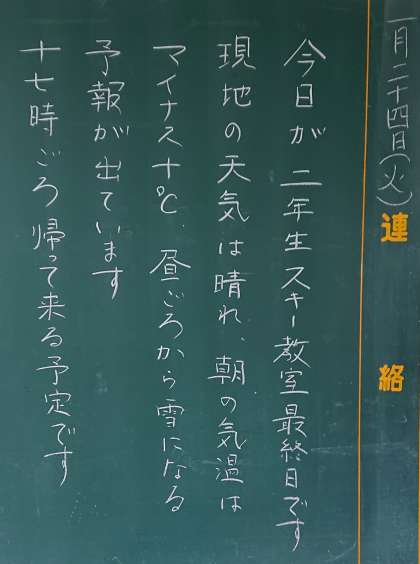 一月二十四日(火)
連絡
今日が二年生スキー教室最終日です
現地の天気は晴れ、朝の気温は
マイナス十℃、昼ごろから雪になる
予報が出ています
十七時ごろ帰って来る予定です